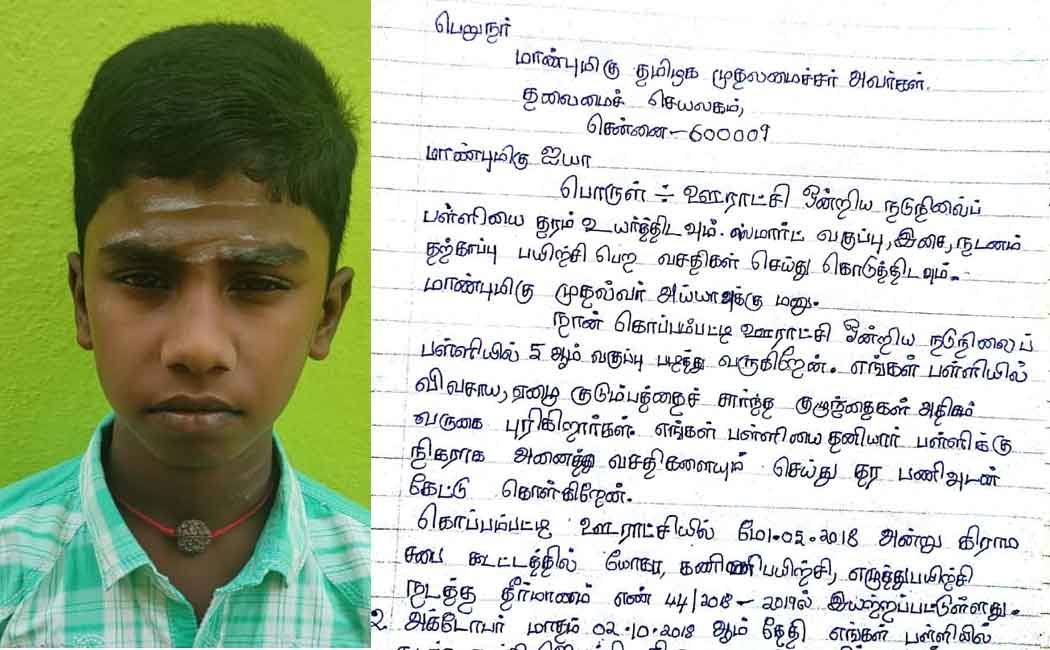 பெறுநர்
மாண்புமிகு தமிழக முதலமைச்சர் அவர்கள்.
தலைமைச் செயலகம்,
சென்னை-600009
மாண்புமிகு ஐயா
பொருள் ÷ ஊராட்சி ஒன்றிய நடுநிலைப்
பள்ளியை தரம் உயர்த்திடவும். ஸ்மார்ட் வகுப்பு, இசை, நடனம்
தற்காப்பு பயிற்சி பெற வசதிகள் செய்து கொடுத்திடவும்.
மாண்புமிகு முதல்வர் அய்யாவுக்கு மனு.
நான் கொப்பம்பட்டி ஊராட்சி ஒன்றிய நடுநிலைப்
பள்ளியில் 5 ஆம் வகுப்பு படித்து வருகிறேன். எங்கள் பள்ளியில்
விவசாய, ஏழை குடும்பத்தைச் சார்ந்த குழந்தைகள் அதிகம்
வருகை புரிகிறார்கள். எங்கள் பள்ளியை தனியார் பள்ளிக்கு
நிகராக அனைத்து வசதிகளையும் செய்து தர பணிவுடன்
கேட்டு கொள்கிறேன்.
கொப்பம்பட்டி ஊராட்சியில் மே1.05.2018 அன்று கிராம
சபை கூட்டத்தில் யோகா, கணிணிபயிற்சி, எழுத்துபயிற்சி
நடத்த தீர்மாணம் எண் 44/2018-2019ல் இயற்றப்பட்டுள்ளது.
2. அக்டோபர் மாதம் 02.10.2018 ஆம் தேதி எங்கள் பள்ளியில்